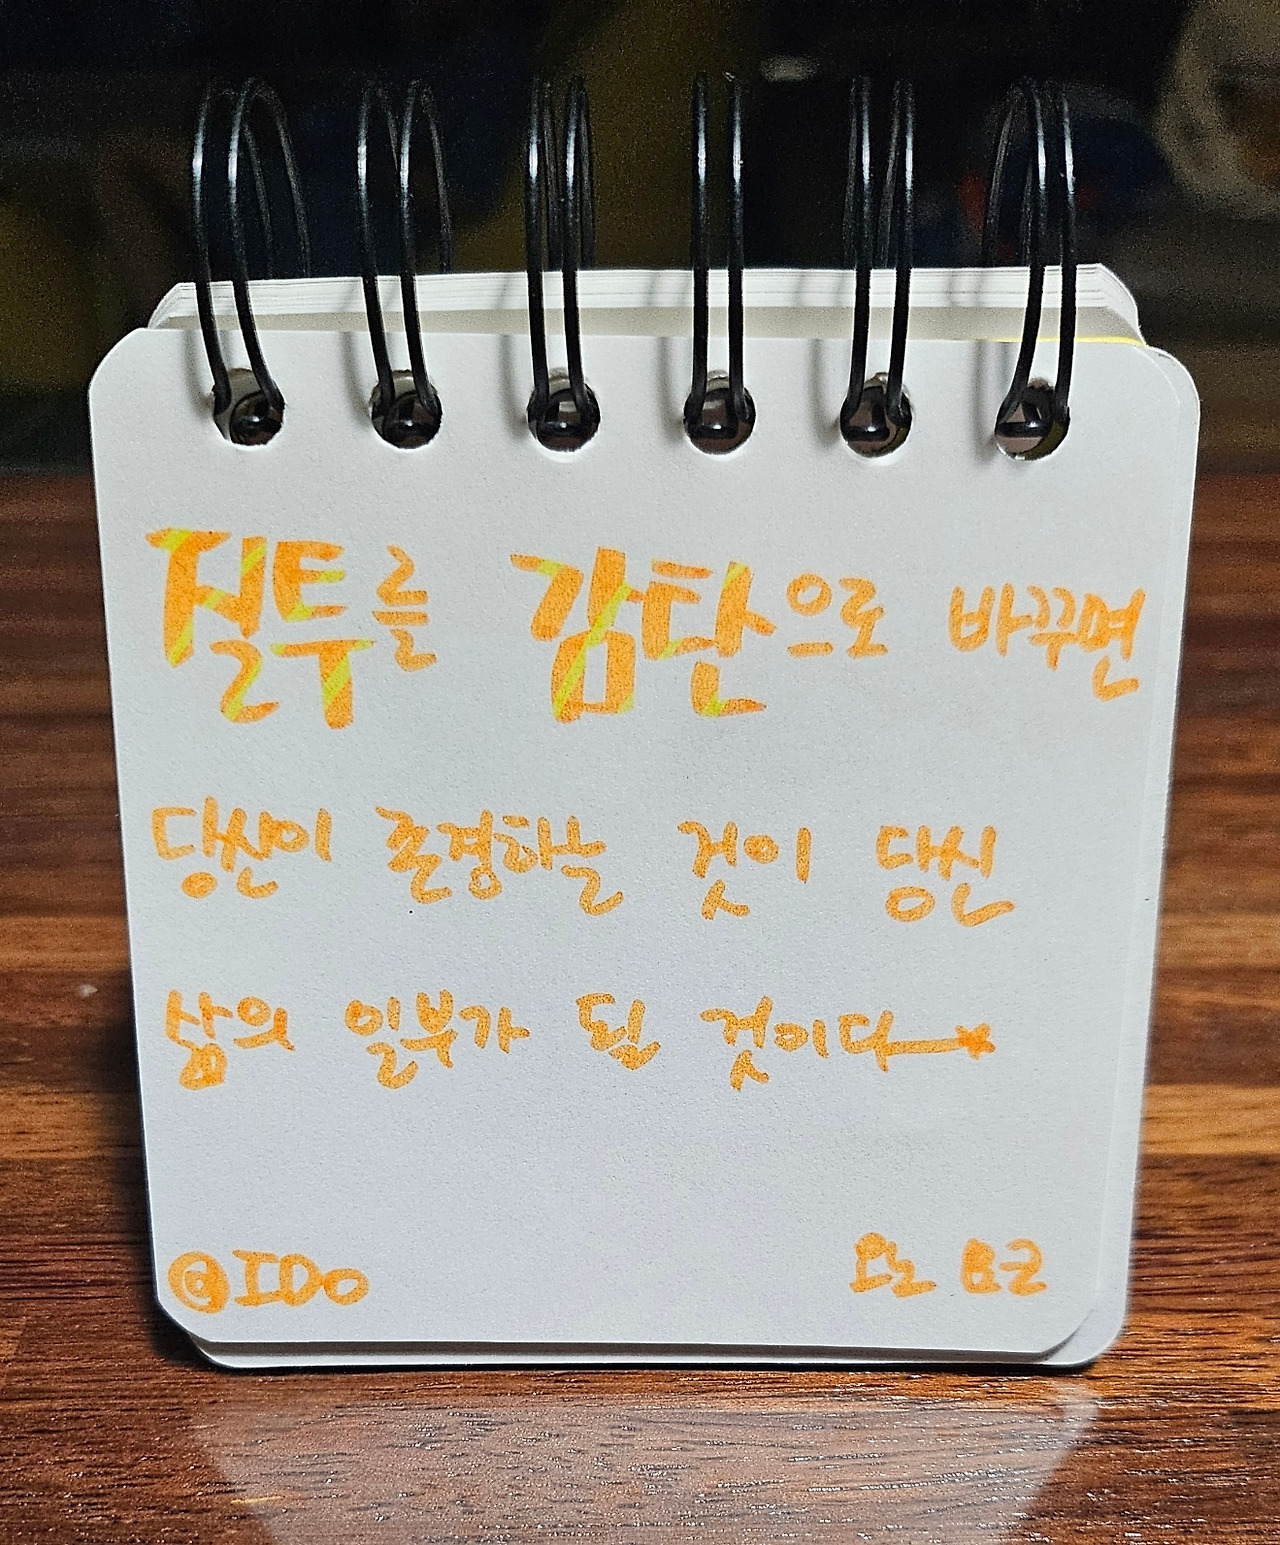 질투를 감탄으로 바꾸면
당신이 존경하는 것이 당신
삶의 일부가 될 것이다
@IDo